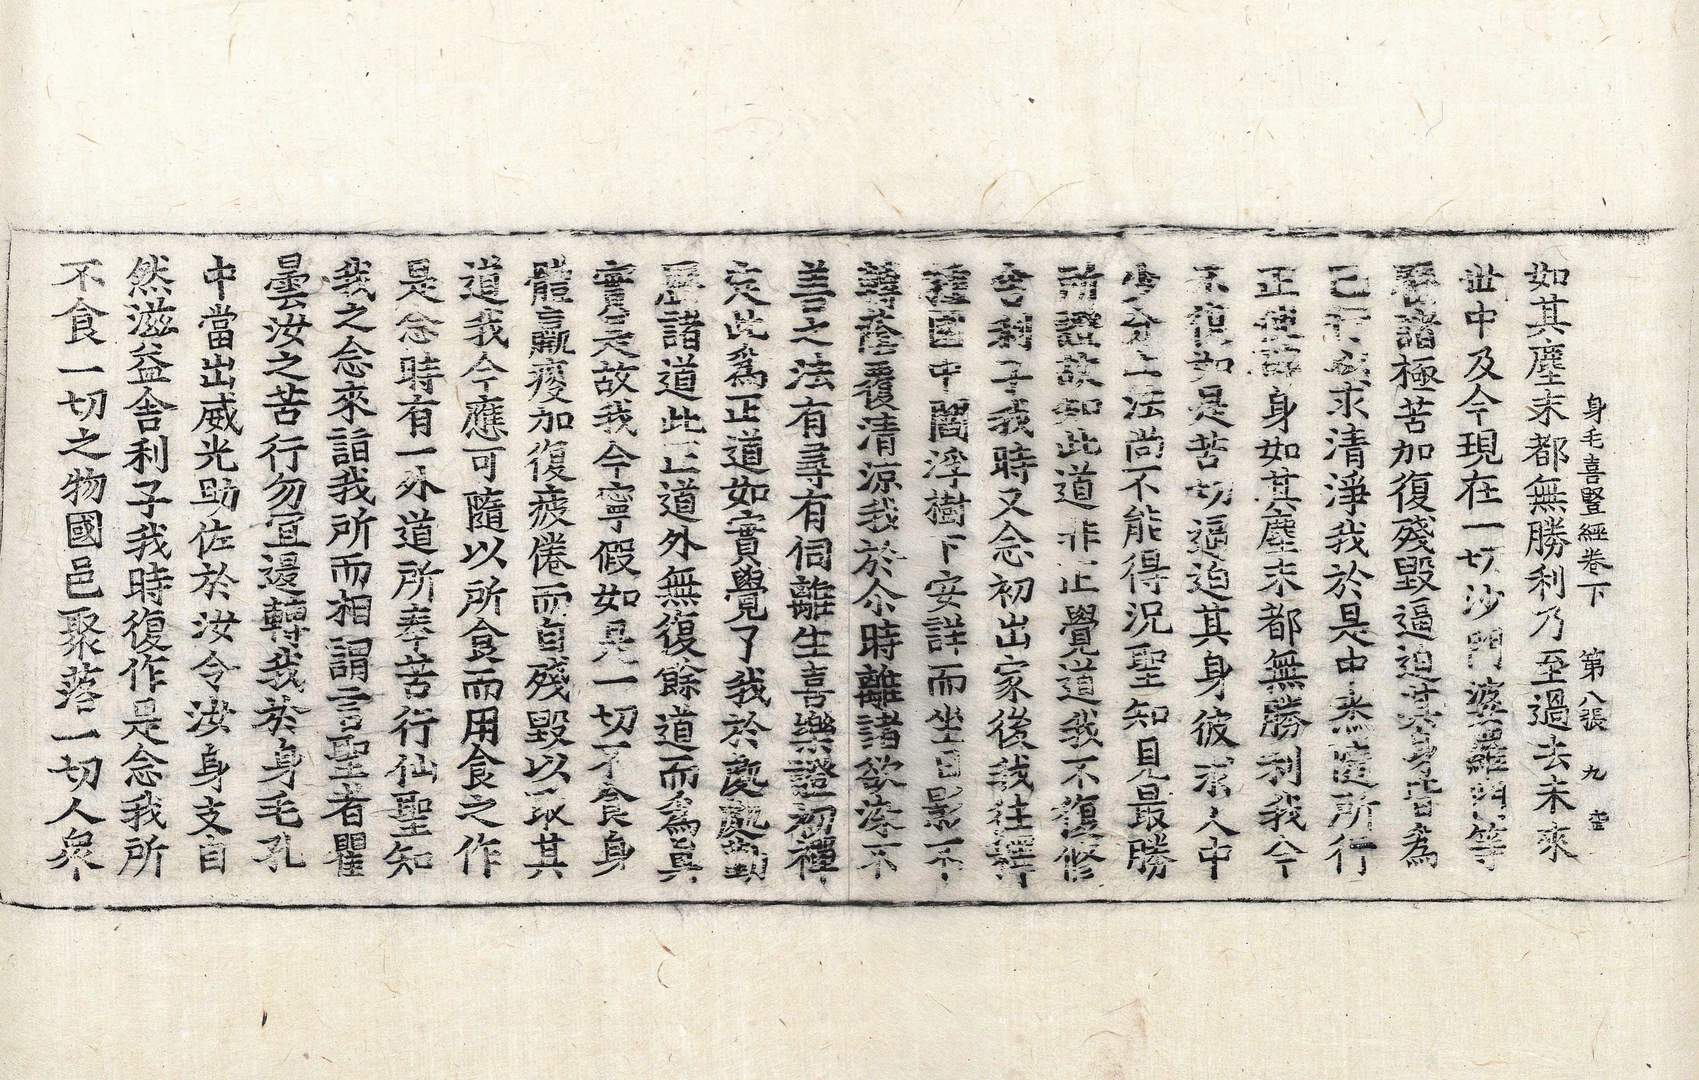 身毛喜竪經卷下　第八張　九
如其塵末都無勝利乃至過去未來
世中及今現在一切沙門婆羅門等
諸極苦加復殘毀逼迫其身皆爲
已行求清淨我於是中悉隨所行
正使苦身如其塵末都無勝利我今
不復如是苦切逼迫其身彼求人中
少分上法尚不能得況聖知見最勝
所證故知此道非正覺道我不復修
舍利子我時又念初出家後我往釋
種國中閻浮樹下安詳而坐日影不
轉蔭覆清涼我於尒時離諸欲染不
善之法有尋有伺離生喜樂證初禪
定此爲正道如實覺了我於處處勤
歷諸道此正道外無復餘道而爲眞
實是故我今寧假如是一切不食身
體羸瘦加復疲倦而自殘毀以取其
道我今應可隨以所食而用食之作
是念時有一外道所奉苦行仙聖知
我之念來詣我所而相謂言聖者瞿
曇汝之苦行勿宜退轉我於身毛孔
中當出威光助佐於汝令汝身支自
然滋益舍利子我時復作是念我所
不食一切之物國邑聚落一切人衆